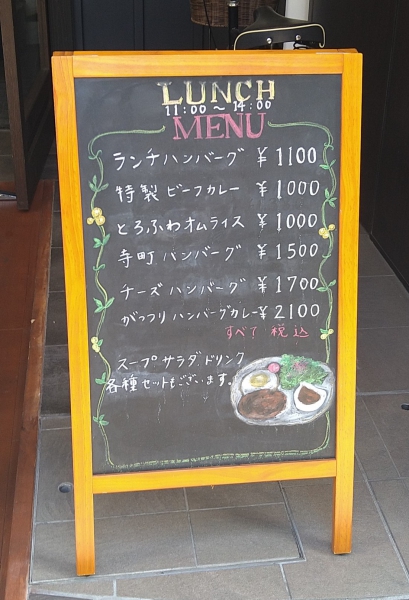 LUNCH
11:00~14:00
MENU
ランチハンバーグ ¥1100
特製 ビーフカレー ¥1000
とろふわオムライス ¥1000
寺町 ハンバーグ ¥1500
チーズ ハンバーグ ¥1700
がっつりハンバーグカレー ¥2100
すべて 税込
スープ サラダ ドリンク
各種セットもございます。